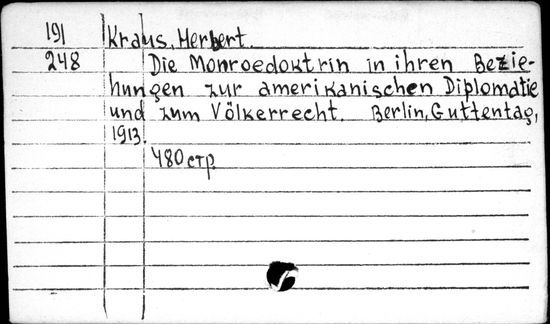 191 Kraus, Herbert.
248 Die Monroedoktrin in ihren Bezie-
hungen zur amerikanischen Diplomatie
und zum Völkerrecht. Berlin, Guttentag,
1913.
480 стр.